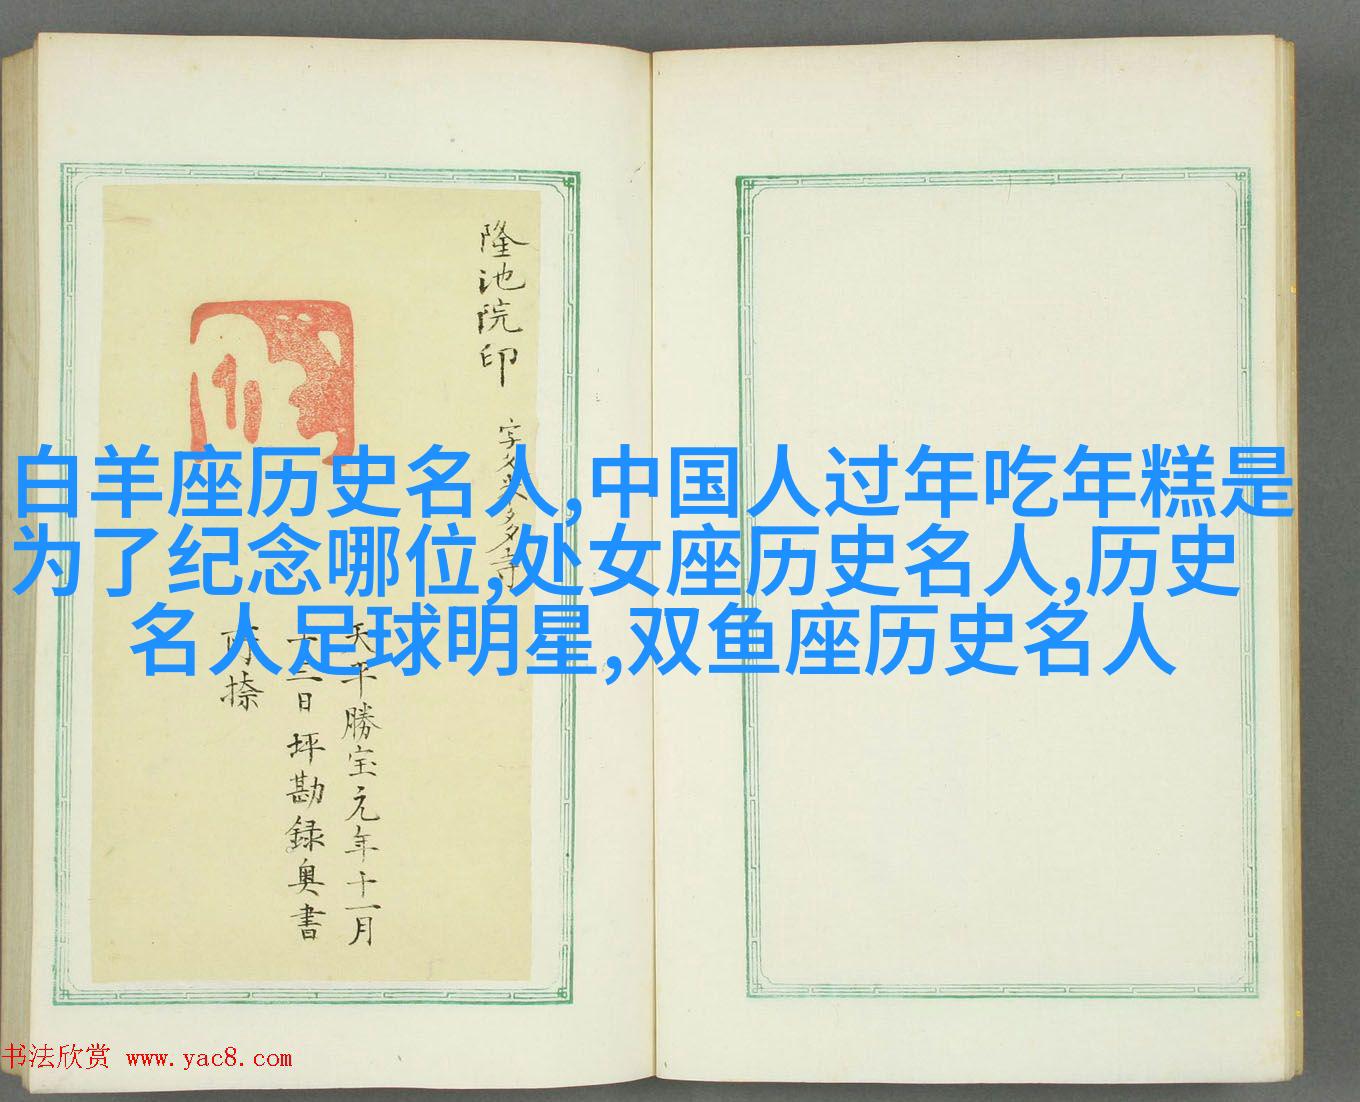 白羊座历史名人,中国人过年吃年糕是
为了纪念哪位,处女座历史名人,历史
名人足球明星,双鱼座历史名人
隆池院印
天平勝宝元年十一月
十三日坪勘録奥書
所捺
书法欣赏 www.yac8.com